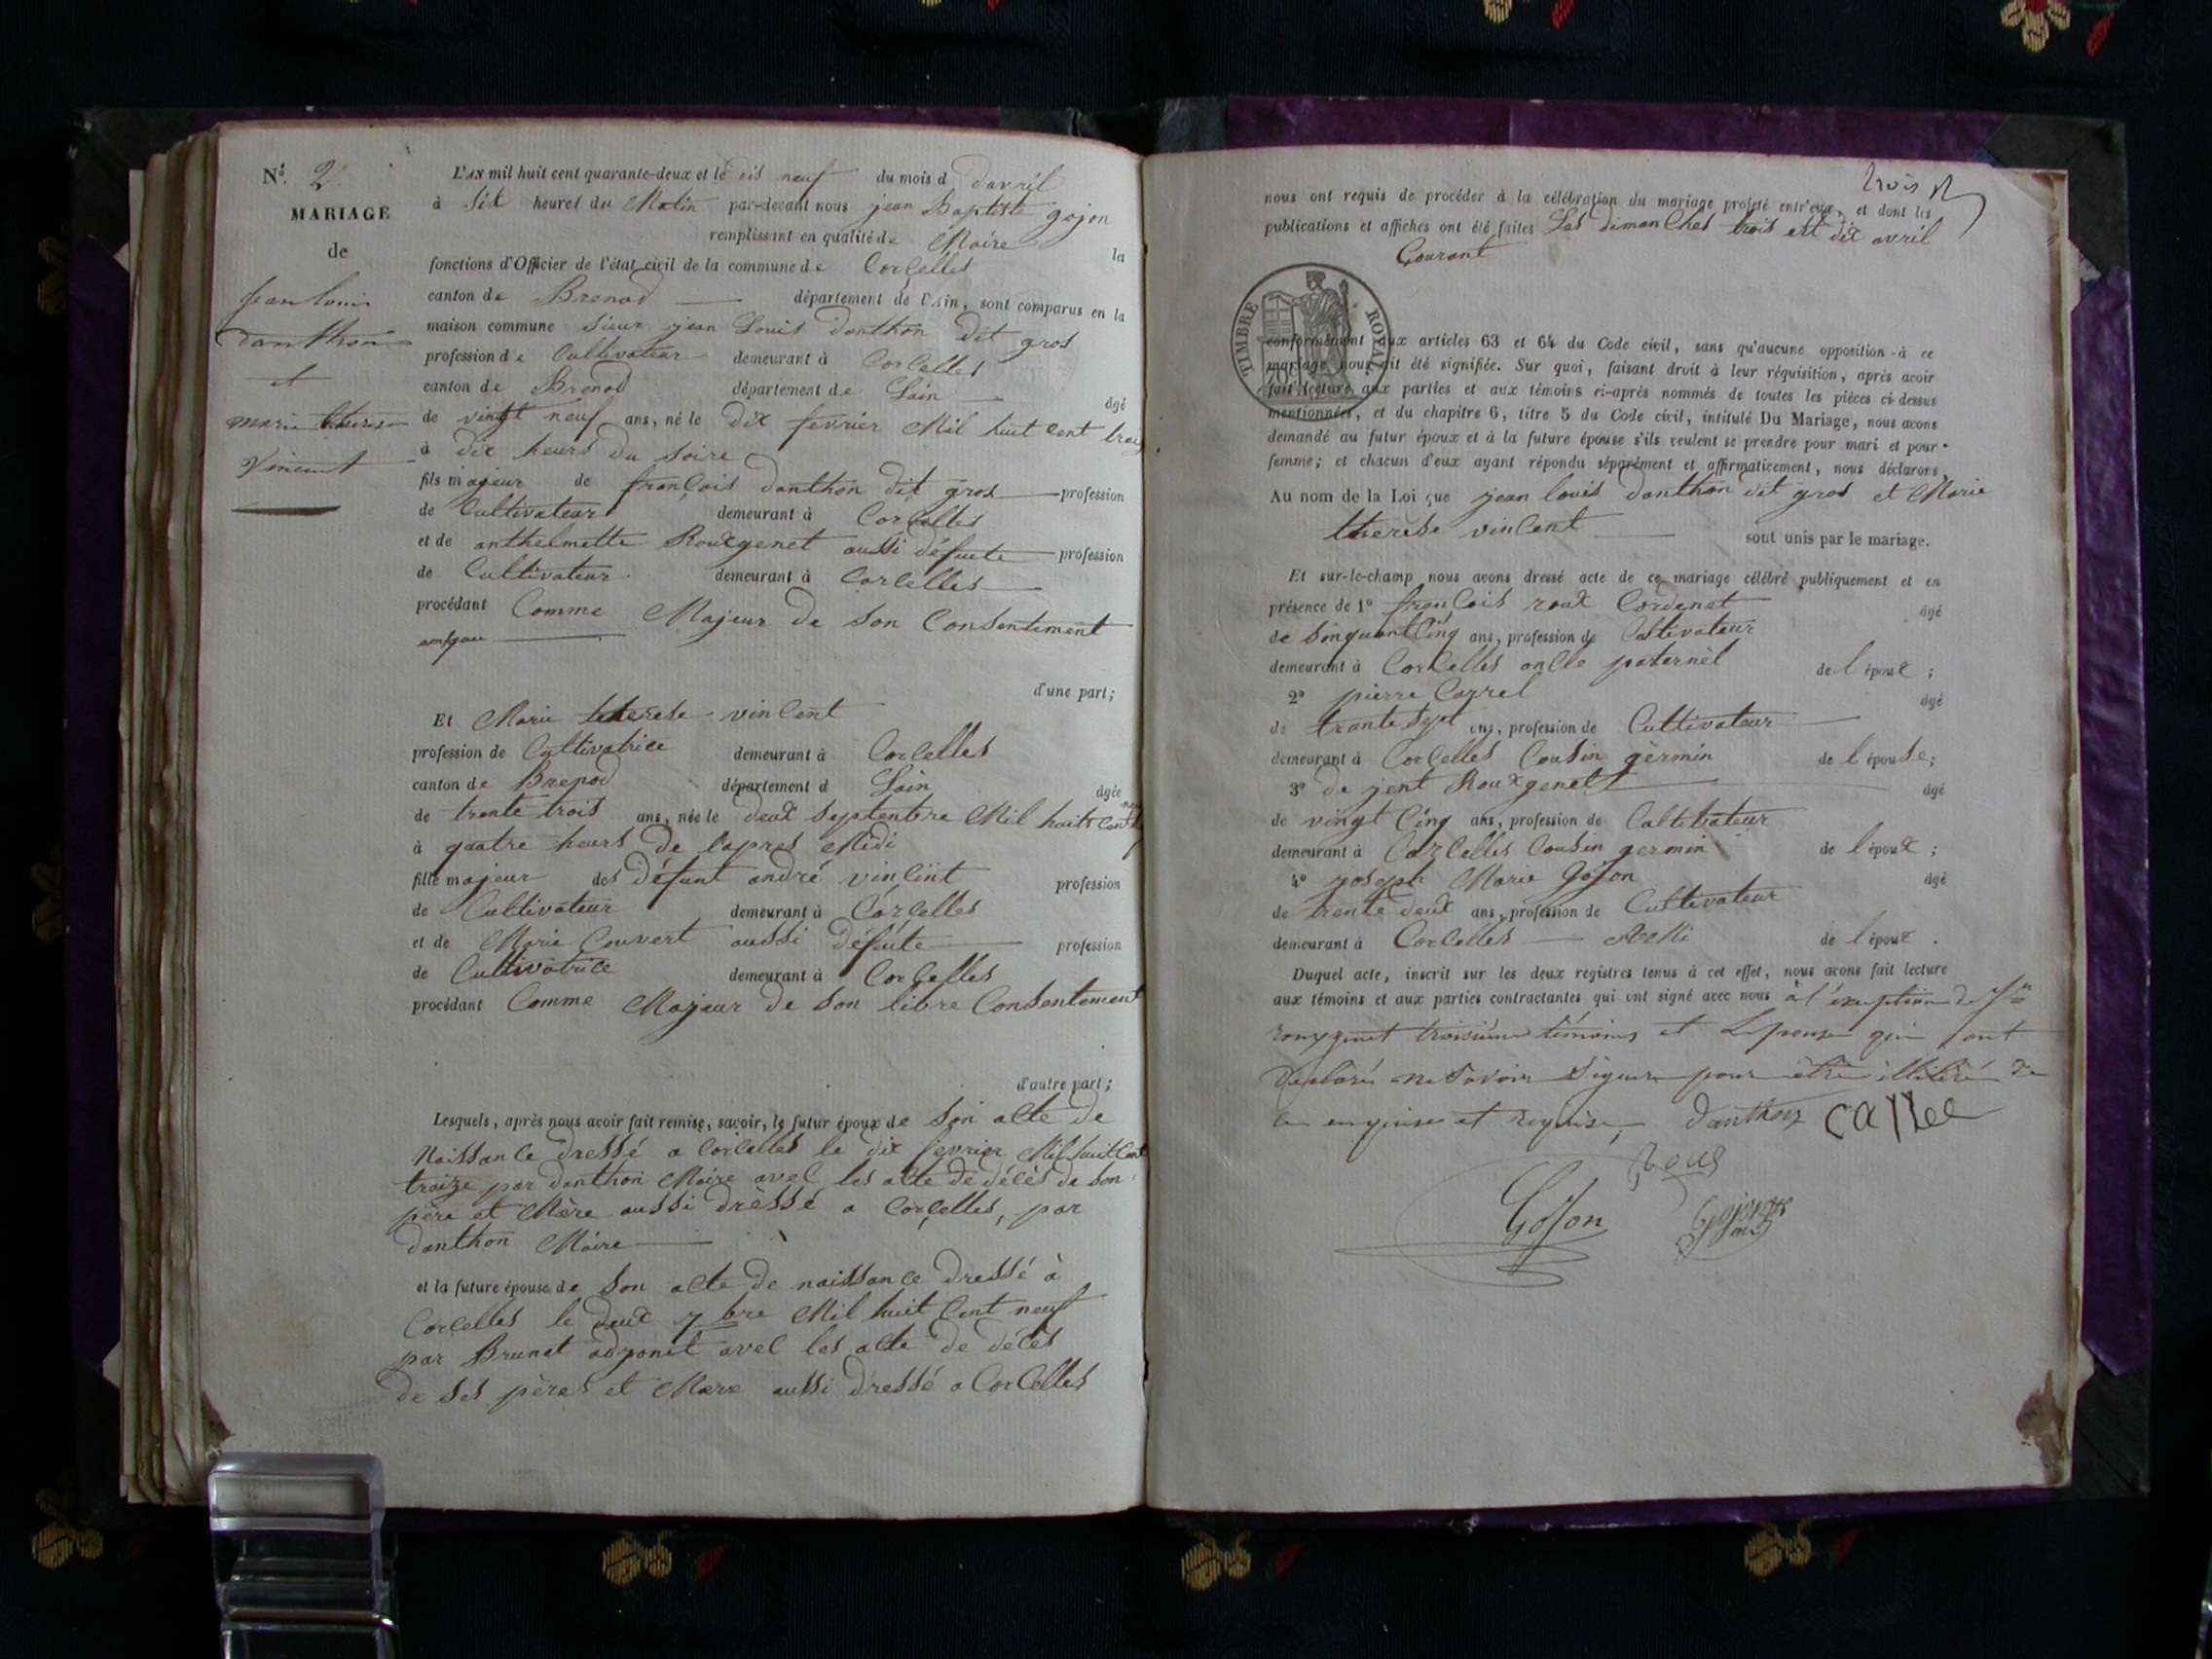 N.° 2
MARIAGE
de
Jean louis
danthon
et
marie therese
Vincent
L'AN mil huit cent quarante-deux et le dis neuf du mois d davril
à Six heures du Matin par-devant nous jean Baptiste gojon
remplissant en qualité de Maire la
fonctions d'Officier de l'état civil de la commune de Corcelles
canton de Brenod département de l'Ain, sont comparus en la
maison commune Sieur jean Louis danthon dit gros
profession de Cultivateur demeurant à Corcelles
canton de Brenod département de Lain âgé
de vingt neuf ans, né le dix fevrier Mil huit cent
à dix heurs du soire
fils majeur de françois danthon dit gros profession
de Cultivateur demeurant à Corcelles
et de anthelmette Rouxgenet aussi défuete profession
de Cultivateur demeurant à Corcelles
procédant Comme Majeur de son Consentement
d'une part;
Et Marie therese vincent
profession de Cultivatrice demeurant à Corcelles
canton de Brenod département d Lain âgée
de trente trois ans, née le deux Septembre Mil huits cent
à quatre heurs de l'apres Midi
fille majeur des défunt andré vincint profession
de Cultivateur demeurant à Corcelles
et de Marie Couvert aussi défuite profession
de Cultivatrice demeurant à Corcelles
procédant Comme Majeur de son libre Consentement
d'autre part;
Lesquels, après nous avoir fait remise, savoir, le futur époux de Son acte de
Naissance dressé a Corcelles le dix fevrier Mil huit Cent
traize par danthon Maire avec les acte de décès de son
père et Mère aussi dréssé a Corcelles, par
danthon Maire
et la future épouse de Son acte de naissance dressé à
Corcelles le deux 7bre Mil huit Cent neuf
par Brunet adjoint avec les acte de décès
de ses pères et Mere aussi dressé a Corcelles
trois
nous ont requis de procéder à la célébration du mariage projeté entr'eux, et dont les
publications et affiches ont été faites Les dimanches trois ett dix avril
Courant
TIMBRE ROYAL
conformément aux articles 63 et 64 du Code civil, sans qu'aucune opposition à ce
mariage nous ait été signifiée. Sur quoi, faisant droit à leur réquisition, après avoir
fait lecture aux parties et aux témoins ci-après nommés de toutes les pièces ci-dessus
mentionnées, et du chapitre 6, titre 5 du Code civil, intitulé Du Mariage, nous avons
demandé au futur époux et à la future épouse s'ils veulent se prendre pour mari et pour
femme; et chacun d'eux ayant répondu séparément et affirmativement, nous déclarons,
Au nom de la Loi que jean louis danthon dit gros et Marie
therese vincent sont unis par le mariage.
Et sur-le-champ nous avons dressé acte de ce mariage célébré publiquement et en
présence de 1° francois roux Cordenet âgé
de Sinquant Cinq ans, profession de Cultivateur
demeurant à Corcelles oncle paternèl de l époux;
2° pierre Carrel âgé
de trante sept ans, profession de Cultivateur
demeurant à Corcelles Cousin germin de l épouse;
3° de jent Rouxgenet âgé
de vingt Cinq ans, profession de Cultivateur
demeurant à Corcelles Cousin germin de l époux;
4° joseph Marie Gojon âgé
de trente deux ans, profession de Cultivateur
demeurant à Corcelles de l époux.
Duquel acte, inscrit sur les deux registres tenus à cet effet, nous avons fait lecture
aux témoins et aux parties contractantes qui ont signé avec nous à l'éxeption de
rouxgenet troisième témoins et Lepouse qui ont
déclaré ne Savoir Signer pour être illitéré de
ce enquise et requise, danthon
Roux
Gojon